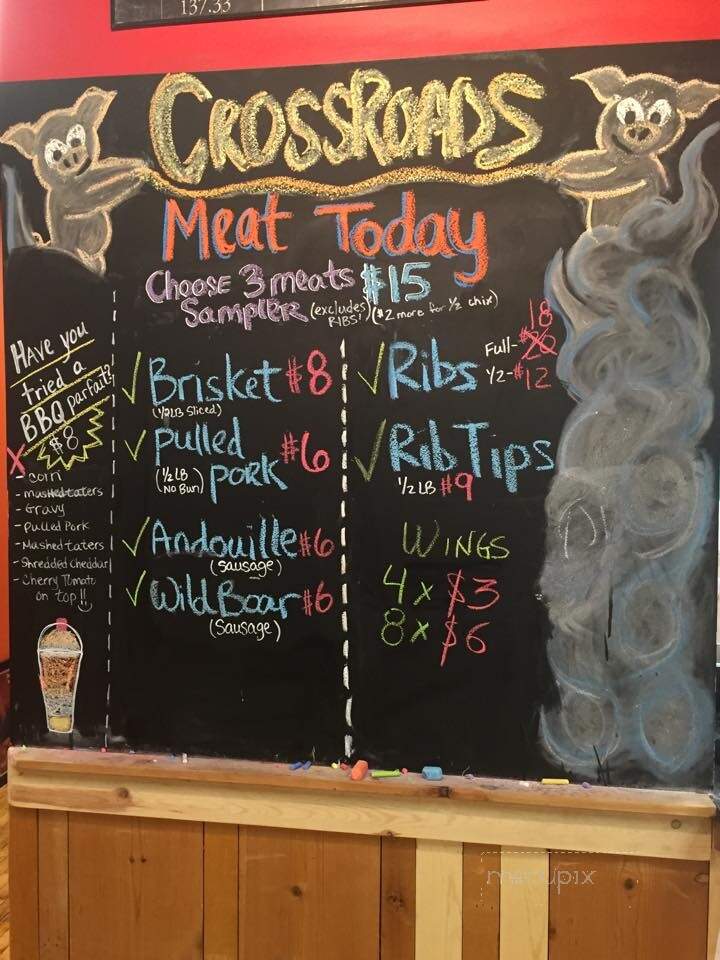 137.33
CROSSROADS
Meat Today
Choose 3 meats $15
Sampler (excludes RIBS!) ($2 more for 1/2 chix)
Have you
tried a
BBQ parfait?
$8
X
- corn
- mashed taters
- Gravy
- Pulled Pork
- Mashed taters
- Shredded Cheddar
- Cherry Tomato
on top!!
✓ Brisket $8
(1/2 LB Sliced)
✓ Pulled
Pork $6
(1/2 LB
No Bun)
✓ Andouille $6
(sausage)
✓ Wild Boar $6
(Sausage)
✓ Ribs
18
Full- $20
1/2- $12
✓ Rib Tips
1/2 LB $9
WINGS
4x $3
8x $6
menupix